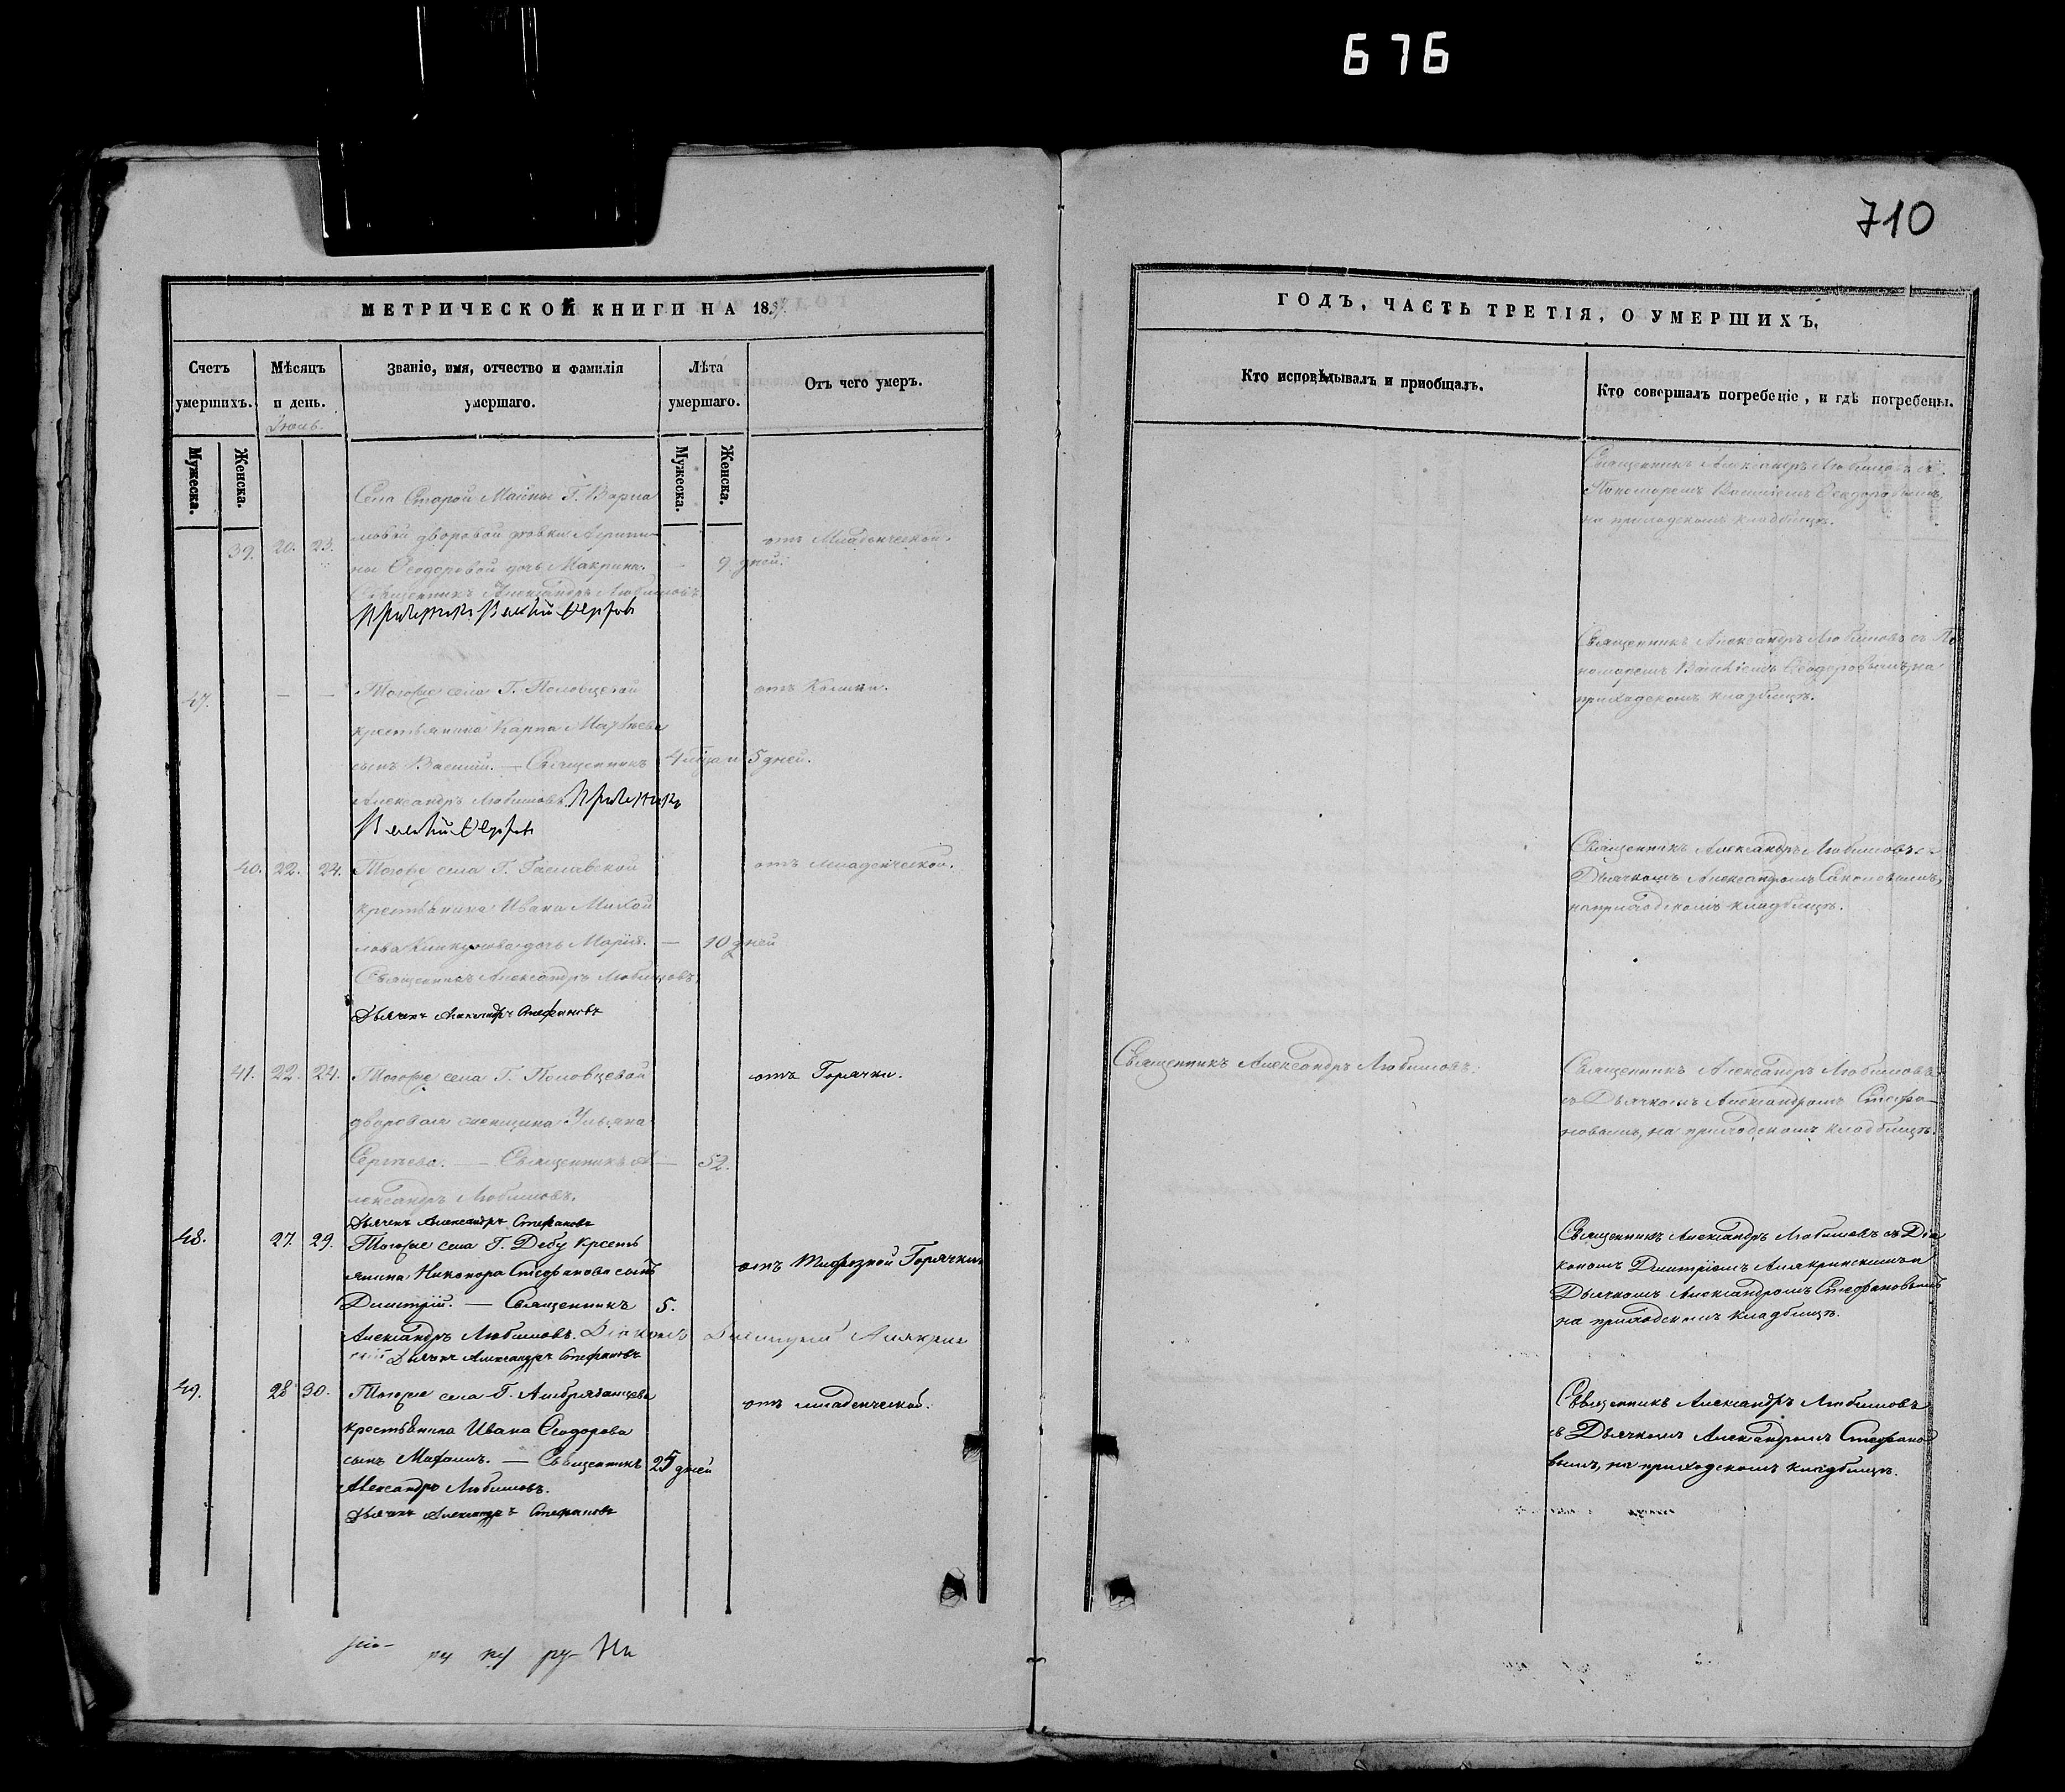 676
710
МЕТРИЧЕСКОЙ КНИГИ НА 18
Счетъ умершихъ.
Мѣсяцъ и день.
Званіе, имя, отчество и фамилія умершаго.
Лѣта умершаго.
Отъ чего умеръ.
Іюль.
Мужеска.
Женска.
Мужеска.
Женска.
Села Старой Майны Г. Варла
мовой дворовой дѣвки Агрипи-
39. 20. 23.
ны Ѳеодоровой дочь Макрина. — 9 дней.
отъ Младенческой.
Священникъ Александръ Любимовъ
47. — —
Тогоже села Г. Половцевой
отъ Колики.
крестьянина Карпа Матвѣева
сынъ Василій. — Священникъ
5 дней.
Александръ Любимовъ.
40. 22. 24.
Тогоже села Г.
отъ младенческой.
крестьянина Ивана Михай
лова дочь Марія. — 10 дней
Священникъ Александръ Любимовъ.
Дьячекъ Александръ Стефановъ
41. 22. 24.
Тогоже села Г. Половцевой
отъ Горячки.
дворовая женщина Ульяна
Сергѣева. — Священникъ А — 52.
лександръ Любимовъ.
Дьячекъ Александръ Стефановъ
48. 27. 29.
Тогоже села Г. Дебу крсть
янина Никонора Стефанова сынъ
отъ Тифозной Горячки
Димитрій. — Священникъ 5.
Александръ Любимовъ. Діаконъ Димитрій Алякрин
скій Дьячекъ Александръ Стефановъ
49. 28 30.
Тогоже села Г.
отъ младенческой.
крестьянина Ивана Ѳеодорова
сынъ — Священникъ 25 дней
Александръ Любимовъ.
Дьячекъ Александръ Стефановъ
ГОДЪ, ЧАСТЬ ТРЕТІЯ, О УМЕРШИХЪ.
Кто исповѣдывалъ и приобщалъ.
Кто совершалъ погребеніе, и гдѣ погребены.
Священникъ Александръ Любимовъ съ
Пономаремъ Василіемъ Ѳеодоровымъ,
на приходскомъ кладбищѣ.
Священникъ Александръ Любимовъ съ По
номаремъ Василіемъ Ѳеодоровымъ, на
приходскомъ кладбищѣ.
Священникъ Александръ Любимовъ съ
Дьячкомъ Александромъ
на приходскомъ кладбищѣ.
Священникъ Александръ Любимовъ.
Священникъ Александръ Любимовъ
съ Дьячкомъ Александромъ Стефа-
новымъ, на приходскомъ кладбищѣ.
Священникъ Александръ Любимовъ съ Діа
кономъ Димитріемъ Алякринскимъ и
Дьячкомъ Александромъ Стефановымъ
на приходскомъ кладбищѣ.
Священникъ Александръ Любимовъ
съ Дьячкомъ Александромъ Стефано
вымъ, на приходскомъ кладбищѣ.